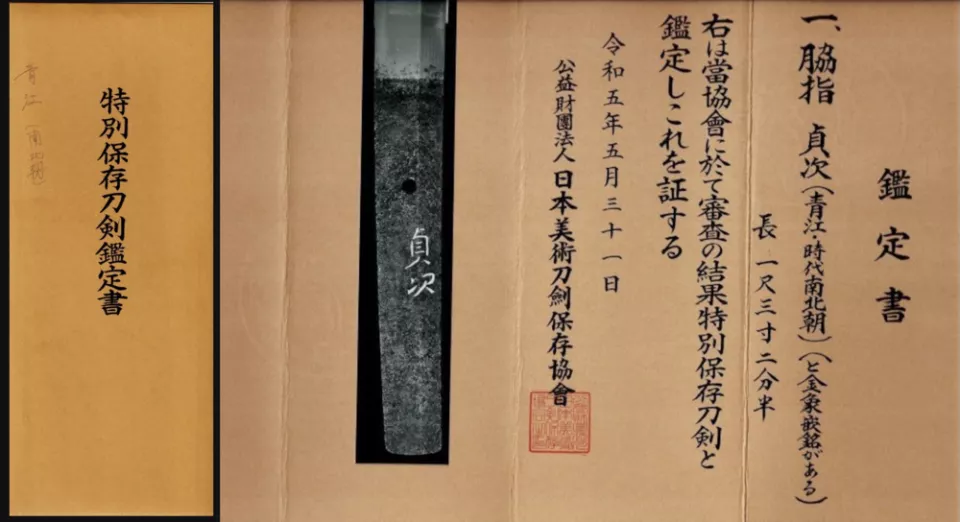 特別保存刀剣鑑定書
鑑定書
一、脇指 貞次(青江・時代南北朝)(と金象嵌銘がある)
長一尺三寸二分半
右は當協會に於て審査の結果特別保存刀剣と
鑑定しこれを証する
令和五年五月三十一日
公益財團法人日本美術刀劍保存協會
貞次